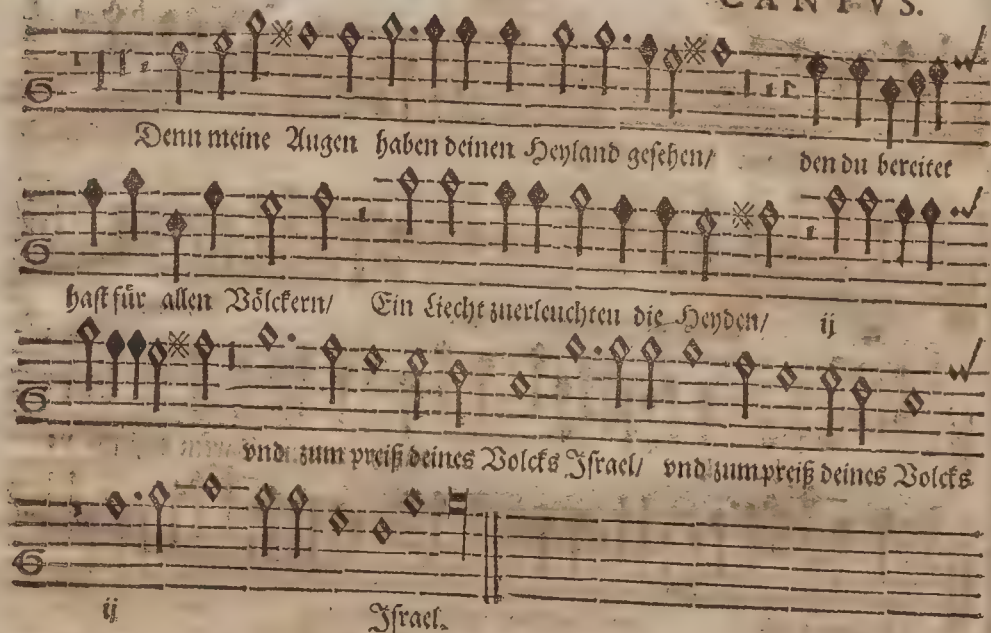 CANTVS.
Denn meine Augen haben deinen Heyland gesehen/ den du bereitet
hast für allen Völckern/ Ein Liecht zuerleuchten die Heyden/ ij
vnd zum preiß deines Volcks Israel/ vnd zum preiß deines Volcks
ij Israel.